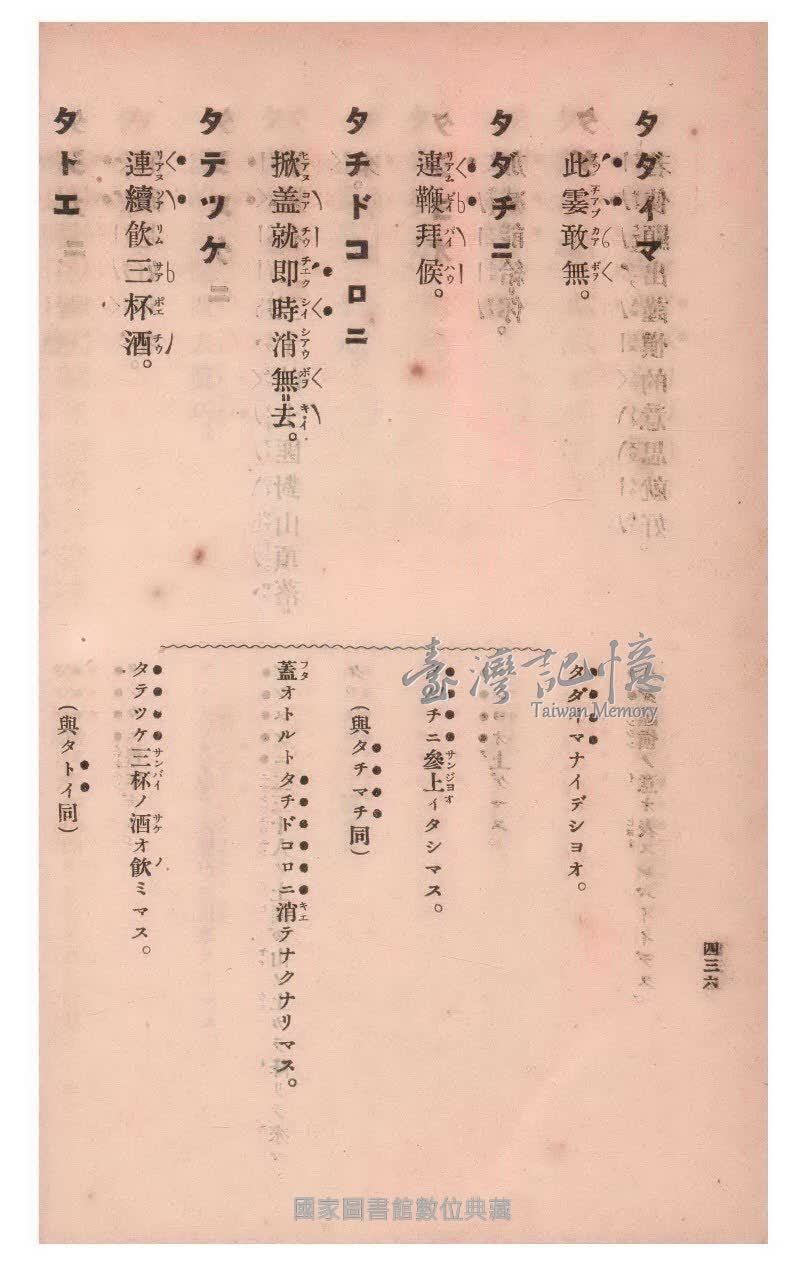 四三六
タダイマ
此霎敢無。
タダイマナイデシヨオ。
タダチニ
連鞭拜候。
チニ參上イタシマス。
タチドコロニ
(與タチマチ同)
掀盖就即時消無=去。
蓋オトルトタチドコロニ消テナクナリマス。
タテツケ
連續飮三杯酒。
タテツケ三杯ノ酒オ飮ミマス。
タトエ
(與タトイ同)
臺灣記憶
Taiwan Memory
國家圖書館數位典藏